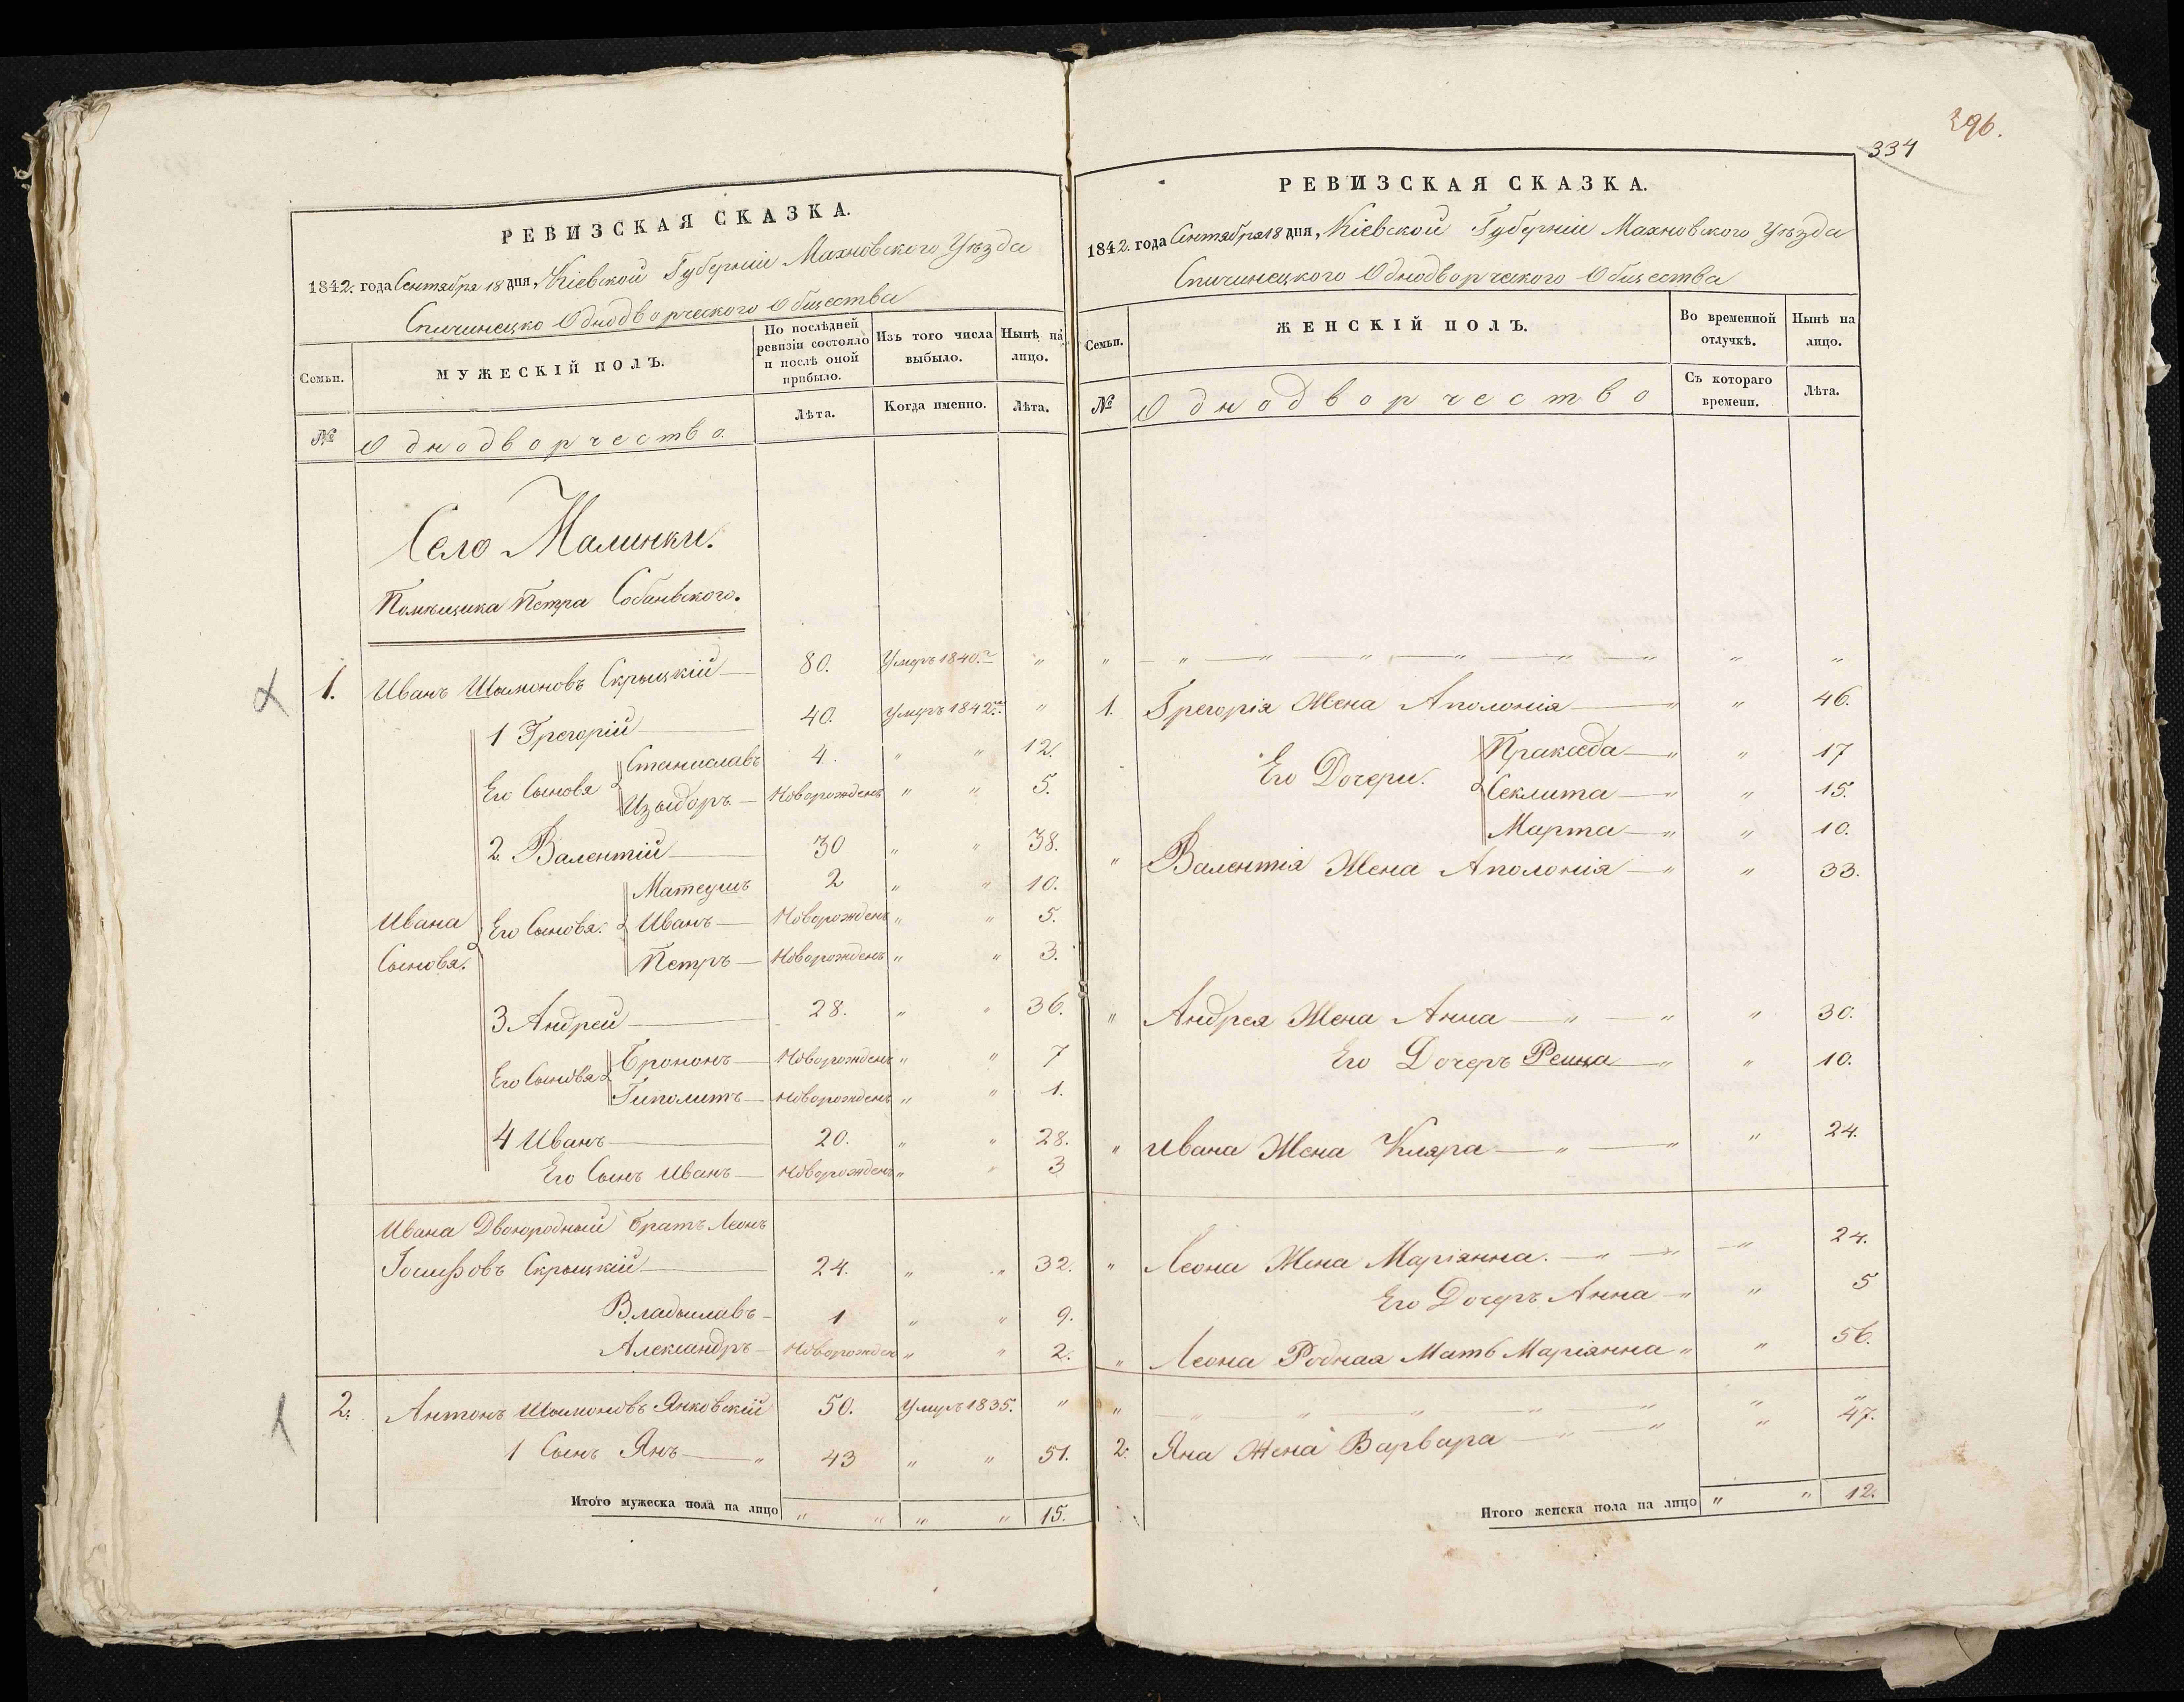 296.
334
РЕВИЗСКАЯ СКАЗКА.
1842. года Сентября 18 дня, Кіевской Губерніи Махновского Уѣзда
Спичинецко Однодворческого Общества
Семьи.
МУЖЕСКІЙ ПОЛЪ.
По послѣдней ревизіи состояло и послѣ оной прибыло.
Изъ того числа выбыло.
Нынѣ на лицо.
№
Однодворчество.
Лѣта.
Когда именно.
Лѣта.
Село Малинки.
Помѣщика Петра Собанского.
1. Иванъ Шымоновъ Скрыцкій 80. Умеръ 1840.г "
1 Грегорій 40. Умеръ 1842. "
Его Сыновя Станиславъ 4. " " 12.
Изыдоръ. Новорожденъ " " 5.
2. Валентій 30 " " 38.
Матеушъ 2 " " 10.
Ивана Сыновя. Его Сыновя. Иванъ Новорожденъ " " 5.
Петръ Новорожденъ " " 3.
3 Андрей 28. " " 36.
Его Сыновя Брононъ Новорожденъ " " 7
Гиполитъ Новорожденъ " " 1.
4 Иванъ 20. " " 28.
Его Сынъ Иванъ Новорожденъ " " 3
Ивана Двоюродный Братъ Леонъ
Іосифовъ Скрыцкій 24. " " 32.
Владыславъ 1 " " 9.
Александръ Новорожден " " 2.
2. Антонъ Шымоновъ Янковскій 50. Умеръ 1835. "
1 Сынъ Янъ " 43 " " 51.
Итого мужеска пола на лицо " " " " 15.
РЕВИЗСКАЯ СКАЗКА.
1842. года Сентября 18 дня, Кіевской Губерніи Махновского Уѣзда
Спичинецкого Однодворческого Общества
Семьи.
ЖЕНСКІЙ ПОЛЪ.
Во временной отлучкѣ.
Нынѣ на лицо.
№
Однодворчество
Съ котораго времени.
Лѣта.
" " " " " " " " "
1. Грегорія Жена Аполонія " " 46.
Его Дочери. Пракседа " " 17
Теклита " " 15.
Марта " " 10.
" Валентія Жена Аполонія " " 33.
" Андрея Жена Анна " " " 30.
Его Дочерь " " 10.
" Ивана Жена Кляра " " " 24.
" Леона Жена Маріянна. " " " 24.
Его Дочерь Анна " " 5
" Леона Родная Мать Маріянна " " 56.
" " " " " " " "
2. Яна Жена Варвара " " " 47.
Итого женска пола на лицо " " 12.